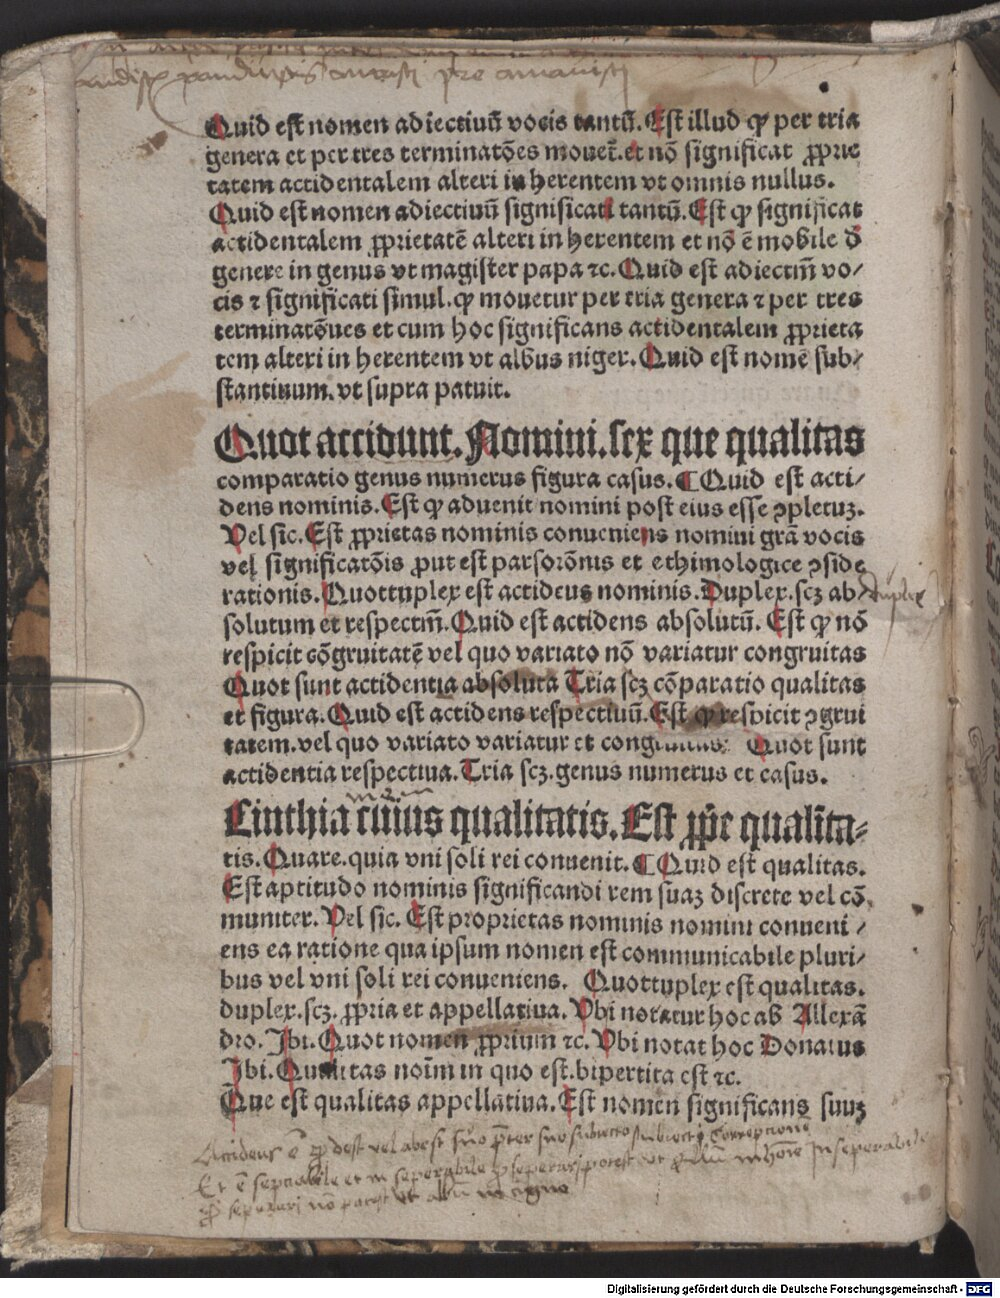 Quid est nomen adiectiuū vocis tantū. Est illud ꝙ per tria
genera et per tres terminatōes mouet̄. et nō significat ꝓprie
tatem accidentalem alteri in herentem vt omnis nullus.
Quid est nomen adiectiuū significati tantū. Est ꝙ significat
accidentalem ꝓprietatē alteri in herentem et nō ē mobile d̄
genere in genus vt magister papa ⁊c. Quid est adiectiñ vo/
cis ⁊ significati simul. ꝙ mouetur per tria genera ⁊ per tres
terminatōues et cum hoc significans accidentalem ꝓprieta
tem alteri in herentem vt albus niger. Quid est nomē sub/
stantiuum. vt supra patuit.
Quot accidunt. Nomini. sex que qualitas
comparatio genus numerus figura casus. ¶ Quid est acci/
dens nominis. Est ꝙ aduenit nomini post eius esse ↄpletuꝫ.
Vel sic. Est ꝓprietas nominis conueniens nomini grā vocis
vel significatōis ꝓut est pars orōnis et ethimologice ↄside
rationis. Quottuplex est accidens nominis. Duplex. scꝫ ab/
duplex
solutum et respectiñ. Quid est accidens absolutū. Est ꝙ nō
respicit cōgruitatē vel quo variato nō variatur congruitas
Quot sunt accidentia absoluta Tria scꝫ cōparatio qualitas
et figura. Quid est accidens respectiuū. Est ꝙ respicit ↄgrui
tatem. vel quo variato variatur et congruitas. Quot sunt
accidentia respectiua. Tria scꝫ. genus numerus et casus.
Cinthia cuius qualitatis. Est ꝓpe qualita-
tis. Quare. quia vni soli rei conuenit. ¶ Quid est qualitas.
Est aptitudo nominis significandi rem suaꝫ discrete vel cō
muniter. Vel sic. Est proprietas nominis nomini conueni /
ens ea ratione qua ipsum nomen est communicabile pluri/
bus vel vni soli rei conueniens. Quottuplex est qualitas.
duplex. scꝫ. ꝓpria et appellatiua. Vbi notatur hoc ab Allexā
dro. Ibi. Quot nomen ꝓprium ⁊c. Vbi notat hoc Donatus
Ibi. Qualitas noīm in quo est. bipertita est ⁊c.
Que est qualitas appellatiua. Est nomen significans suuꝫ
Accidens ē ꝙ adest vel abest
Et ē separabile et in separabile
Digitalisierung gefördert durch die Deutsche Forschungsgemeinschaft - DFG